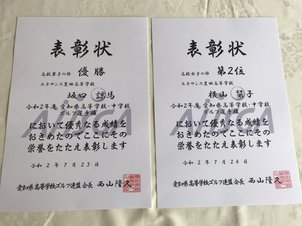 表彰状
高校男子の部 優勝
ルネサンス豊田高等学校
坂口 馬
令和2年度 愛知県高等学校・中学校
ゴルフ選手権
において優秀なる成績を
おさめたのでここにその
栄誉をたたえ表彰します
令和2年7月23日
愛知県高等学校ゴルフ連盟会長 西山隆久
表彰状
高校女子の部 第2位
ルネサンス豊田高等学校
横山 子
令和2年度 愛知県高等学校・中学校
ゴルフ選手権
において優秀なる成績を
おさめたのでここにその
栄誉をたたえ表彰します
令和2年7月24日
愛知県高等学校ゴルフ連盟会長 西山隆久